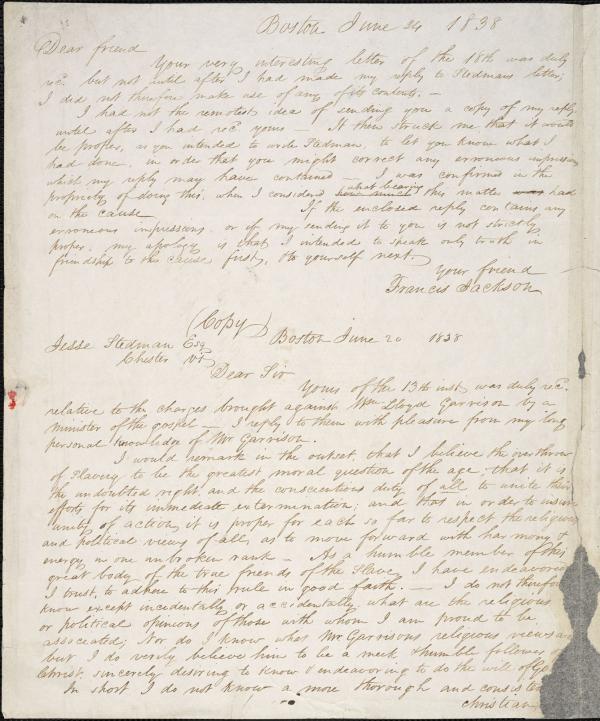 Boston June 24 1838
Dear friend
Your very interesting letter of the 18th was duly
rec. but not until after I had made my reply to Stedmans letter;
I did not therefore make use of any of its contents. —
I had not the remotest idea of sending you a copy of my reply
until after I had recd yours — It then struck me that it would
be proper, as you intended to write Stedman, to let you know what I
had done, in order that you might correct any erroneous impressions
which my reply may have contained — I was confirmed in the
propriety of doing this, when I considered what bearing this matter had
on the cause If the enclosed reply contains any
erroneous impressions, or if my sending it to you is not strictly
proper, my apology is that I intended to speak only truth in
friendship to the cause first, & to yourself next.
Your friend
Francis Jackson
(Copy)
Jesse Stedman Esq Boston June 20 1838
Chester Vt
Dear Sir
Yours of the 13th inst was duly rec.
relative to the charges brought against Wm Lloyd Garrison by a
minister of the gospel — I reply to them with pleasure from my long
personal knowledge of Mr Garrison.
I would remark in the outset, that I believe the overthrow
of Slavery to be the greatest moral question of the age, that it is
the undoubted right, and the conscientious duty of all to unite their
efforts for its immediate extermination; and that in order to insure
unity of action, it is proper for each so far to respect the religious
and political views of all, as to move forward with harmony &
energy in one unbroken rank — As a humble member of this
great body of the true friends of the Slave, I have endeavored
I trust, to adhere to this rule in good faith. — I do not therefore
know except incidentally or accidentally what are the religious
or political opinions of those with whom I am proud to be
associated; Nor do I know what Mr Garrisons religious views are
but I do verily believe him to be a meek, & humble follower of
Christ, sincerely desiring to know & endeavoring to do the will of God
In short I do not know a more thorough and consistent
christian